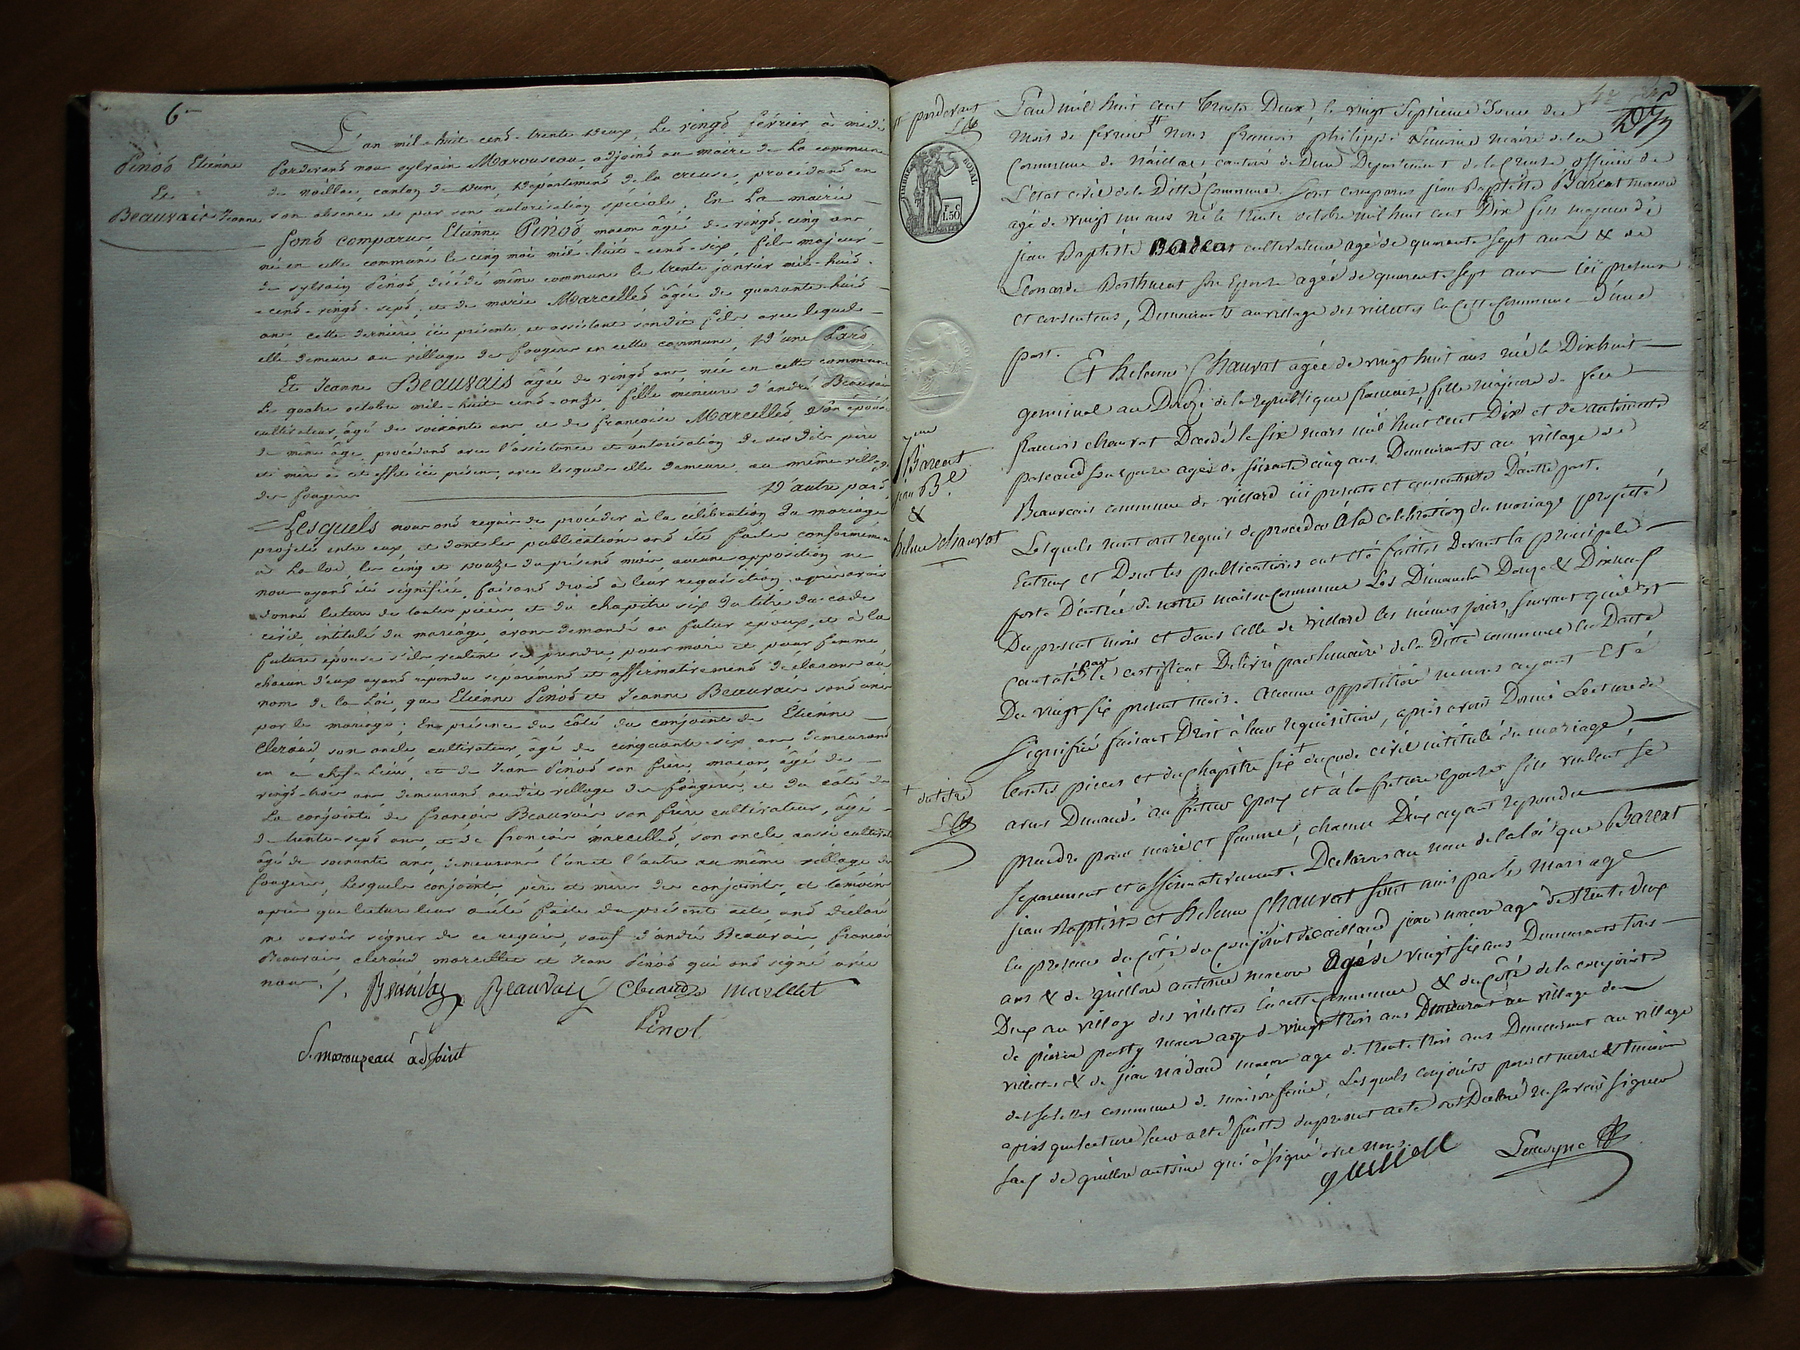 6
Pinot Etienne
Et
Beauvais Jeanne
L'an mil-huit-cent-trente-deux, le vingt février à midi
Pardevant nous sylvain Marouseau adjoint au maire de la commune
de naillat, canton de dun, département de la creuse, procédant en
son absence et par son autorisation spéciale, En la mairie
sont comparus Etienne Pinot maçon âgé de vingt-cinq ans
né en cette commune le cinq mai mil-huit-cent-six, fils majeur
de sylvain Pinot, décédé même commune le trente janvier mil-huit
-cent-vingt-sept, et de marie Marcellot âgée de quarante-huit
ans cette dernière ici présente et assistant son dit fils avec lequel
elle demeure au village de fougères en cette commune, D'une part
Et Jeanne Beauvais âgée de vingt ans née en cette commune
le quatre octobre mil-huit-cent-onze, fille mineure d'andré Beauvais
cultivateur, âgé de soixante ans, et de françoise Marcellot, son épouse
de même âge, procédant avec l'assistance et autorisation de ses dits père
et mère à cet effet ici présens, avec lesquels elle demeure au même village
des fougères D'autre part
Lesquels nous ont requis de procéder à la célébration du mariage
projeté entre eux, et dont les publications ont été faites conformément
à la loi, les cinq et douze du présent mois, aucune opposition ne
nous ayant été signifiée, faisant droit à leur réquisition, après avoir
donné lecture de toutes pièces, et du chapitre six du titre du code
civil intitulé du mariage, avons demandé au futur époux, et à la
future épouse s'ils veulent se prendre pour mari et pour femme
chacun d'eux ayant répondu séparément et affirmativement déclarons au
nom de la Loi, que Etienne Pinot et Jeanne Beauvais sont unis
par le mariage; En présence du côté du conjoint de Etienne
Cleraud, son oncle cultivateur âgé de cinquante-six ans demeurant
en ce chef-Lieu, et de Jean Pinot son frère, maçon, âgé de
vingt-trois ans demeurant au dit village de fougères, et du côté de
la conjointe de françois Beauvais son frère cultivateur, âgé
de trente-sept ans, et de françois marcellot, son oncle, aussi cultivateur
âgé de soixante ans, demeurans l'un et l'autre au même village de
fougères, Lesquels conjoints, père et mères des conjoints, et témoins
après que lecture leur a été faite du présent acte ont déclaré
ne savoir signer de ce requis, sauf d'andré Beauvais, françois
Beauvais, cleraud, marcellot et Jean Pinot qui ont signé avec
nous ./.
Beauvais Cleraud marcelet
Pinol
S. marouzeau adjoint
pardevant
L'an mil huit cent trente Deux, le vingt septième Jour du
mois de février nous françois philippe Lemoine maire de la
Commune de Naillat canton de Dun Département de la Creuse officier de
L'état civil de la Ditte Commune, Sont comparus jean Baptiste Barcat macon
agé de vingt un ans né le trente octobre mil huit cent Dix fils majeur de
TIMBRE ROYAL
1.50
jean Baptiste Barcat cultivateur agé de quarante sept ans & de
Léonarde Berthuent Son épouse agée de quarente sept ans ici presens
et consentens, Demeurants au village des villettes En Cette Commune D'une
part.
Et helene Chauvat agée de vingt huit ans né le Dixhuit
germinal an Douze de la république française, fille majeure de feu
françois chauvat Décédé le six mars mil huit cent Dix et de
sa épouse agée de soixante cinq ans Demeurants au village de
Beauvais commune de villard ici presente et consentente D'autre part.
7eme
Barcat
jean Bte
&
helene chauvat
Lesquels nous ont requis de proceder à la celebration du mariage projetté
Entreux et Dont les publications ont été faittes Devant la principale
porte D'entrée de notre maison Commune Les Dimanches Douze & Dixneuf
Du present mois et dans celle de villard les mêmes jours, suivant qu'il est
constaté par le certificat Délivré par le maire de la Ditte commune En Datte
Du vingt six present mois. aucune opposition ne nous ayant Eté
Signifiée faisant Droit à leur réquisition, après avoir Donné Lecture de
toutes pieces et du chapitre six du code civil intitulé du mariage
+ du titre
avons Demandé au futeur Epoux et à la future Epouse s'ils veulent se
prendre pour mari et femme, chacun D'eux ayant repondu
separement et affirmativement, Déclarons au nom de la loi que Barcat
jean Baptiste et helene Chauvat sont unis par le mariage
En presence du coté du conjoint de Caillaud jean macon agé de trente deux
ans & de Guillon antoine macon agé de vingt six ans Demeurants tous
Deux au village des villettes En cette Commune & du côté de la conjointe
de pierre macon agé de vingt trois ans Demeurant au village des
villettes & de jean nadaud macon agé de trente trois ans Demeurant au village
des commune de maisonfeine, Lesquels conjoints pere et mere & temoins
apres que lecture leur a été faitte du present acte ont Déclaré ne savoir signer
sauf de guillon antoine qui a signé avec nous.